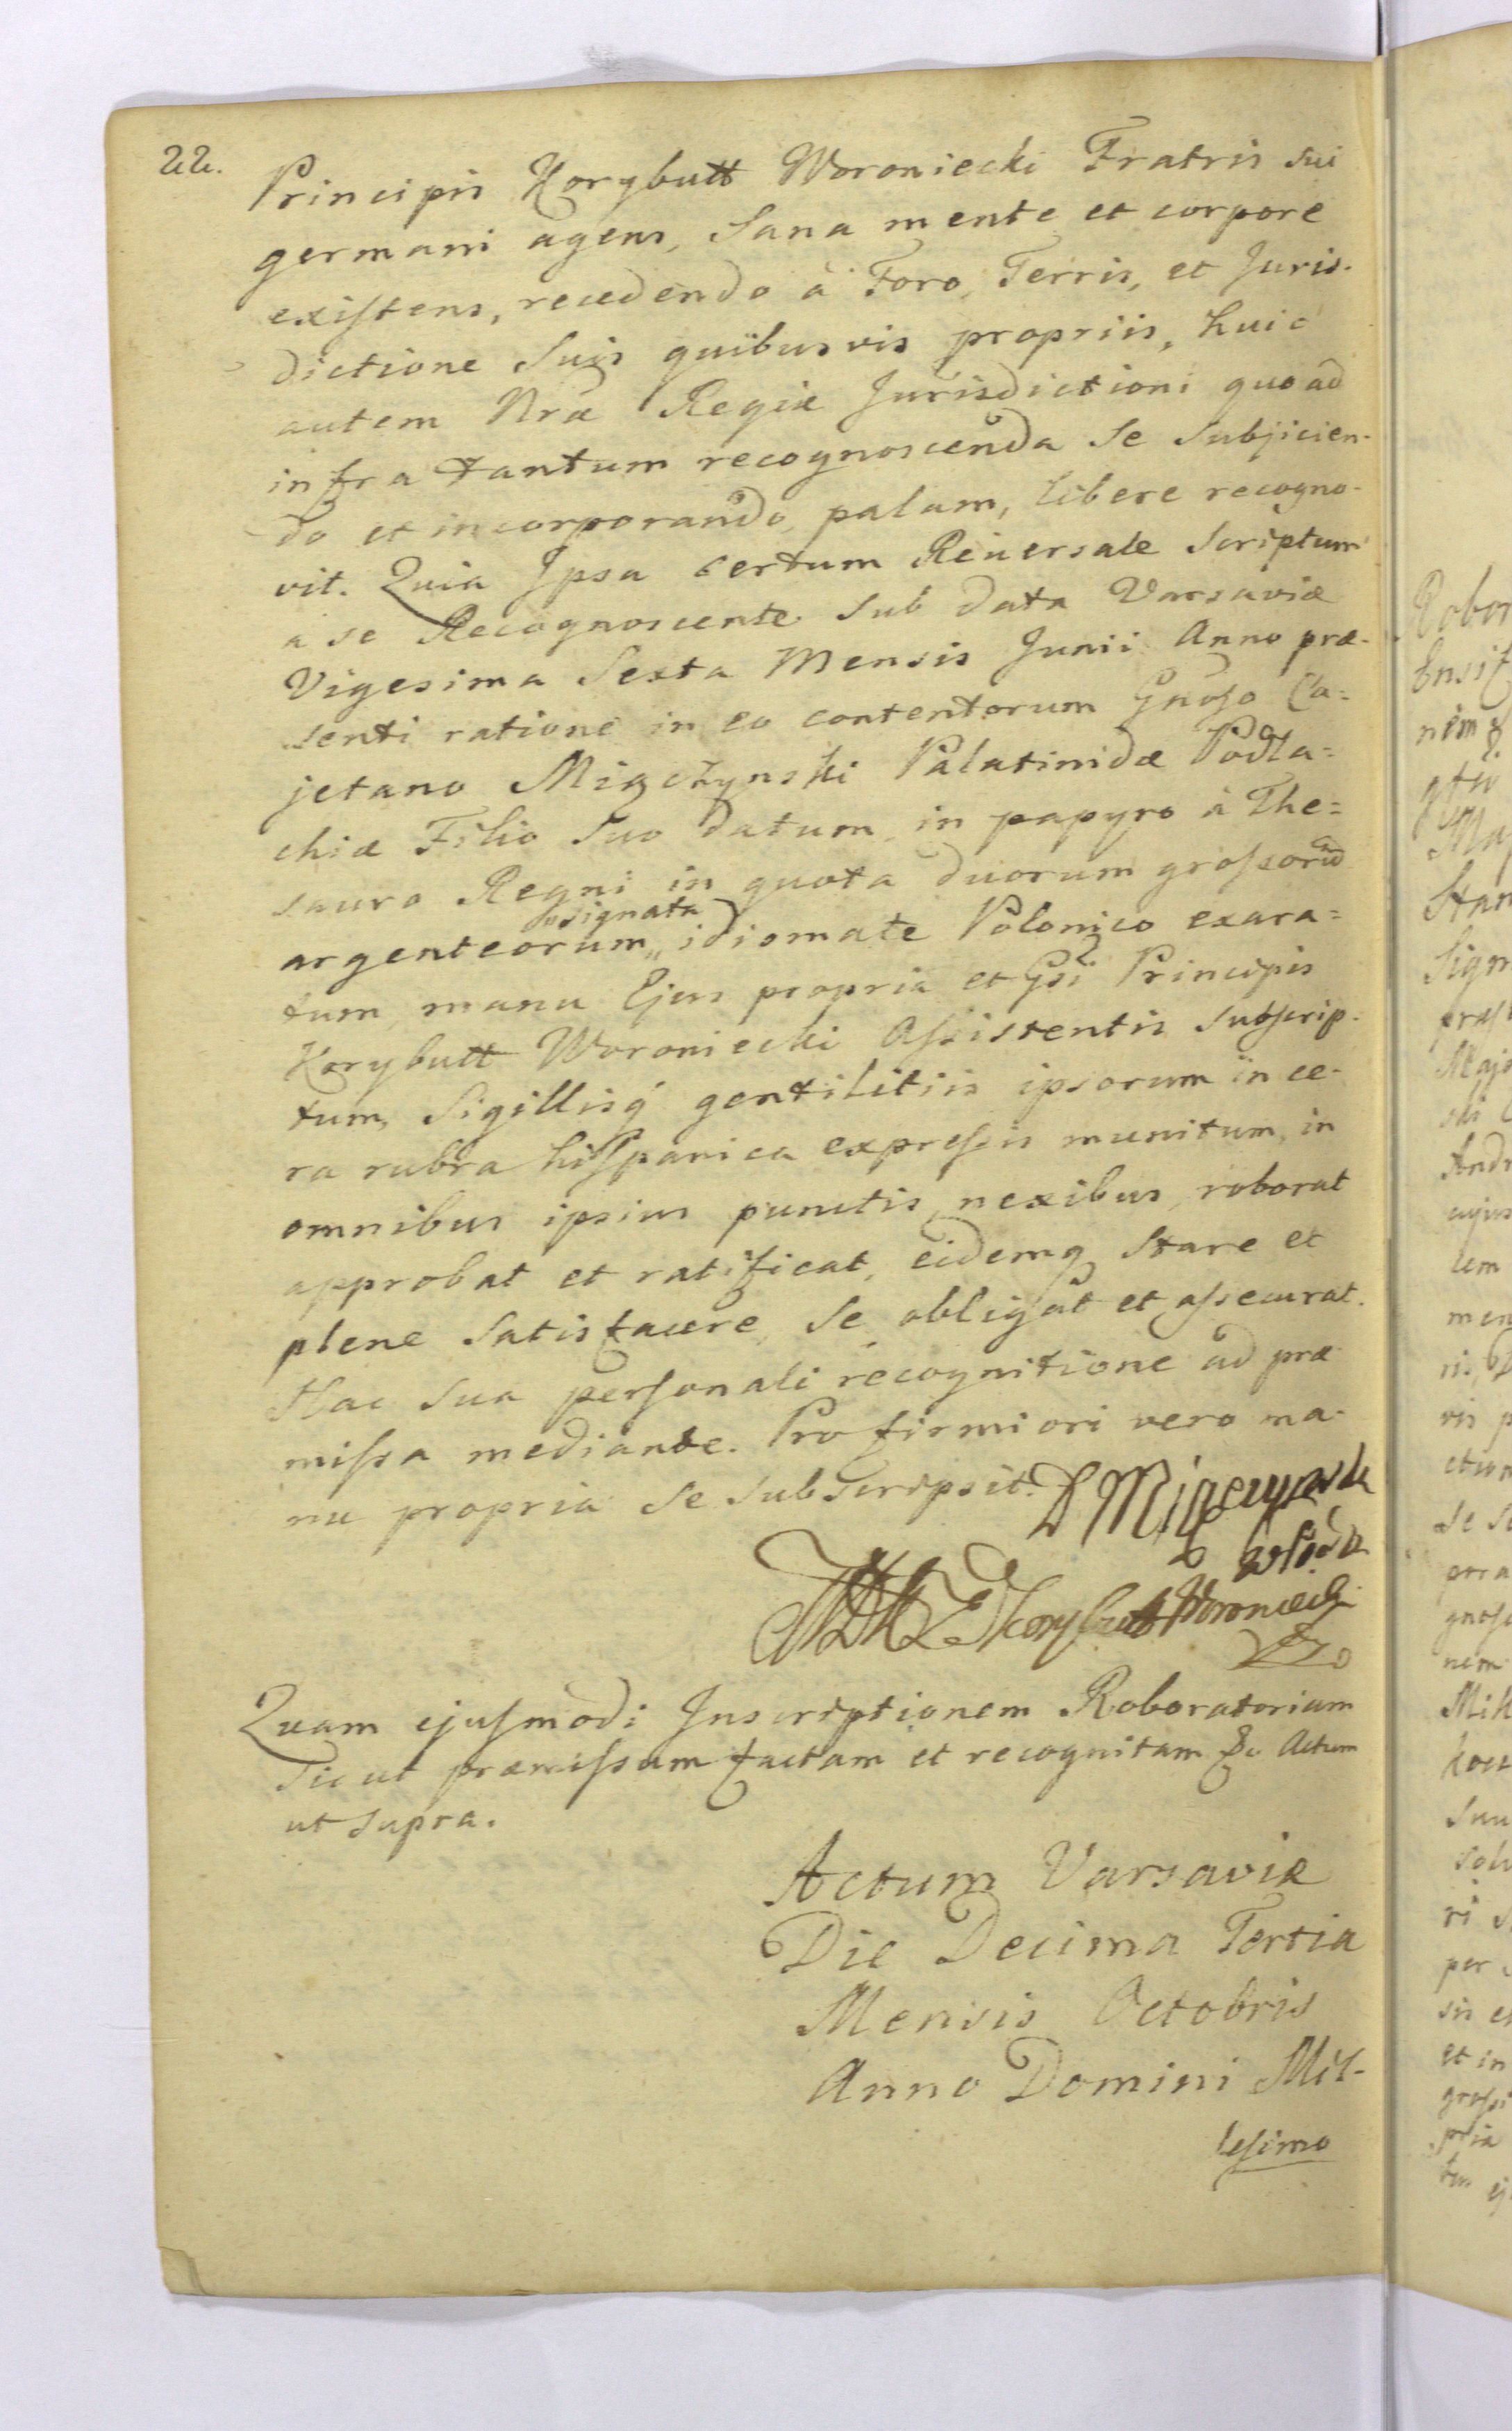 22.
Principis Korybutt Woroniecki Fratris sui
germani agens, Sana mente et corpore
existens, recedendo à Foro, Terris, et Juris-
dictione Suis quibusvis propriis, huic
autem Nræ Regiæ Jurisdictioni quoad
infra tantum recognoscenda Se Subjicien-
do et incorporando, palam, libere recogno-
vit. Quia Ipsa certum Reuersale Scriptum
a se Recognoscente Sub data Varsaviæ
Vigesima Sexta Mensis Junii Anno præ-
senti ratione in eo contentorum Gnoso Ca=
jetano Miączynski Palatinidæ Podla=
chiæ Filio Suo datum, in papyro à The=
sauro Regni in quota duorum grossorũ
signata
argenteorum,, idiomate Polonico exara=
tum, manu Ejus propria et Gsi Principis
Korybutt Woroniecki Assistentis subscrip-
tum, Sigillisq gentilitiis ipsorum in ce-
ra rubra hispanica expressis munitum, in
omnibus ipsius punctis, nexibus, roborat
approbat et ratificat, eidemq Stare et
plene Satisfacere, Se obligat et assecurat.
Hac Sua personali recognitione ad præ
missa mediante. Pro firmiori vero ma-
nu propria Se Subscripsit. D Miączynska
Korybutt Woroniecki
Quam ejusmodi Inscriptionem Roboratoriam
Sicut præmissam factam et recognitam &c Actum
ut Supra.
Actum Varsaviæ
Die Decima Tertia
Mensis Octobris
Anno Domini Mil-
lesimo